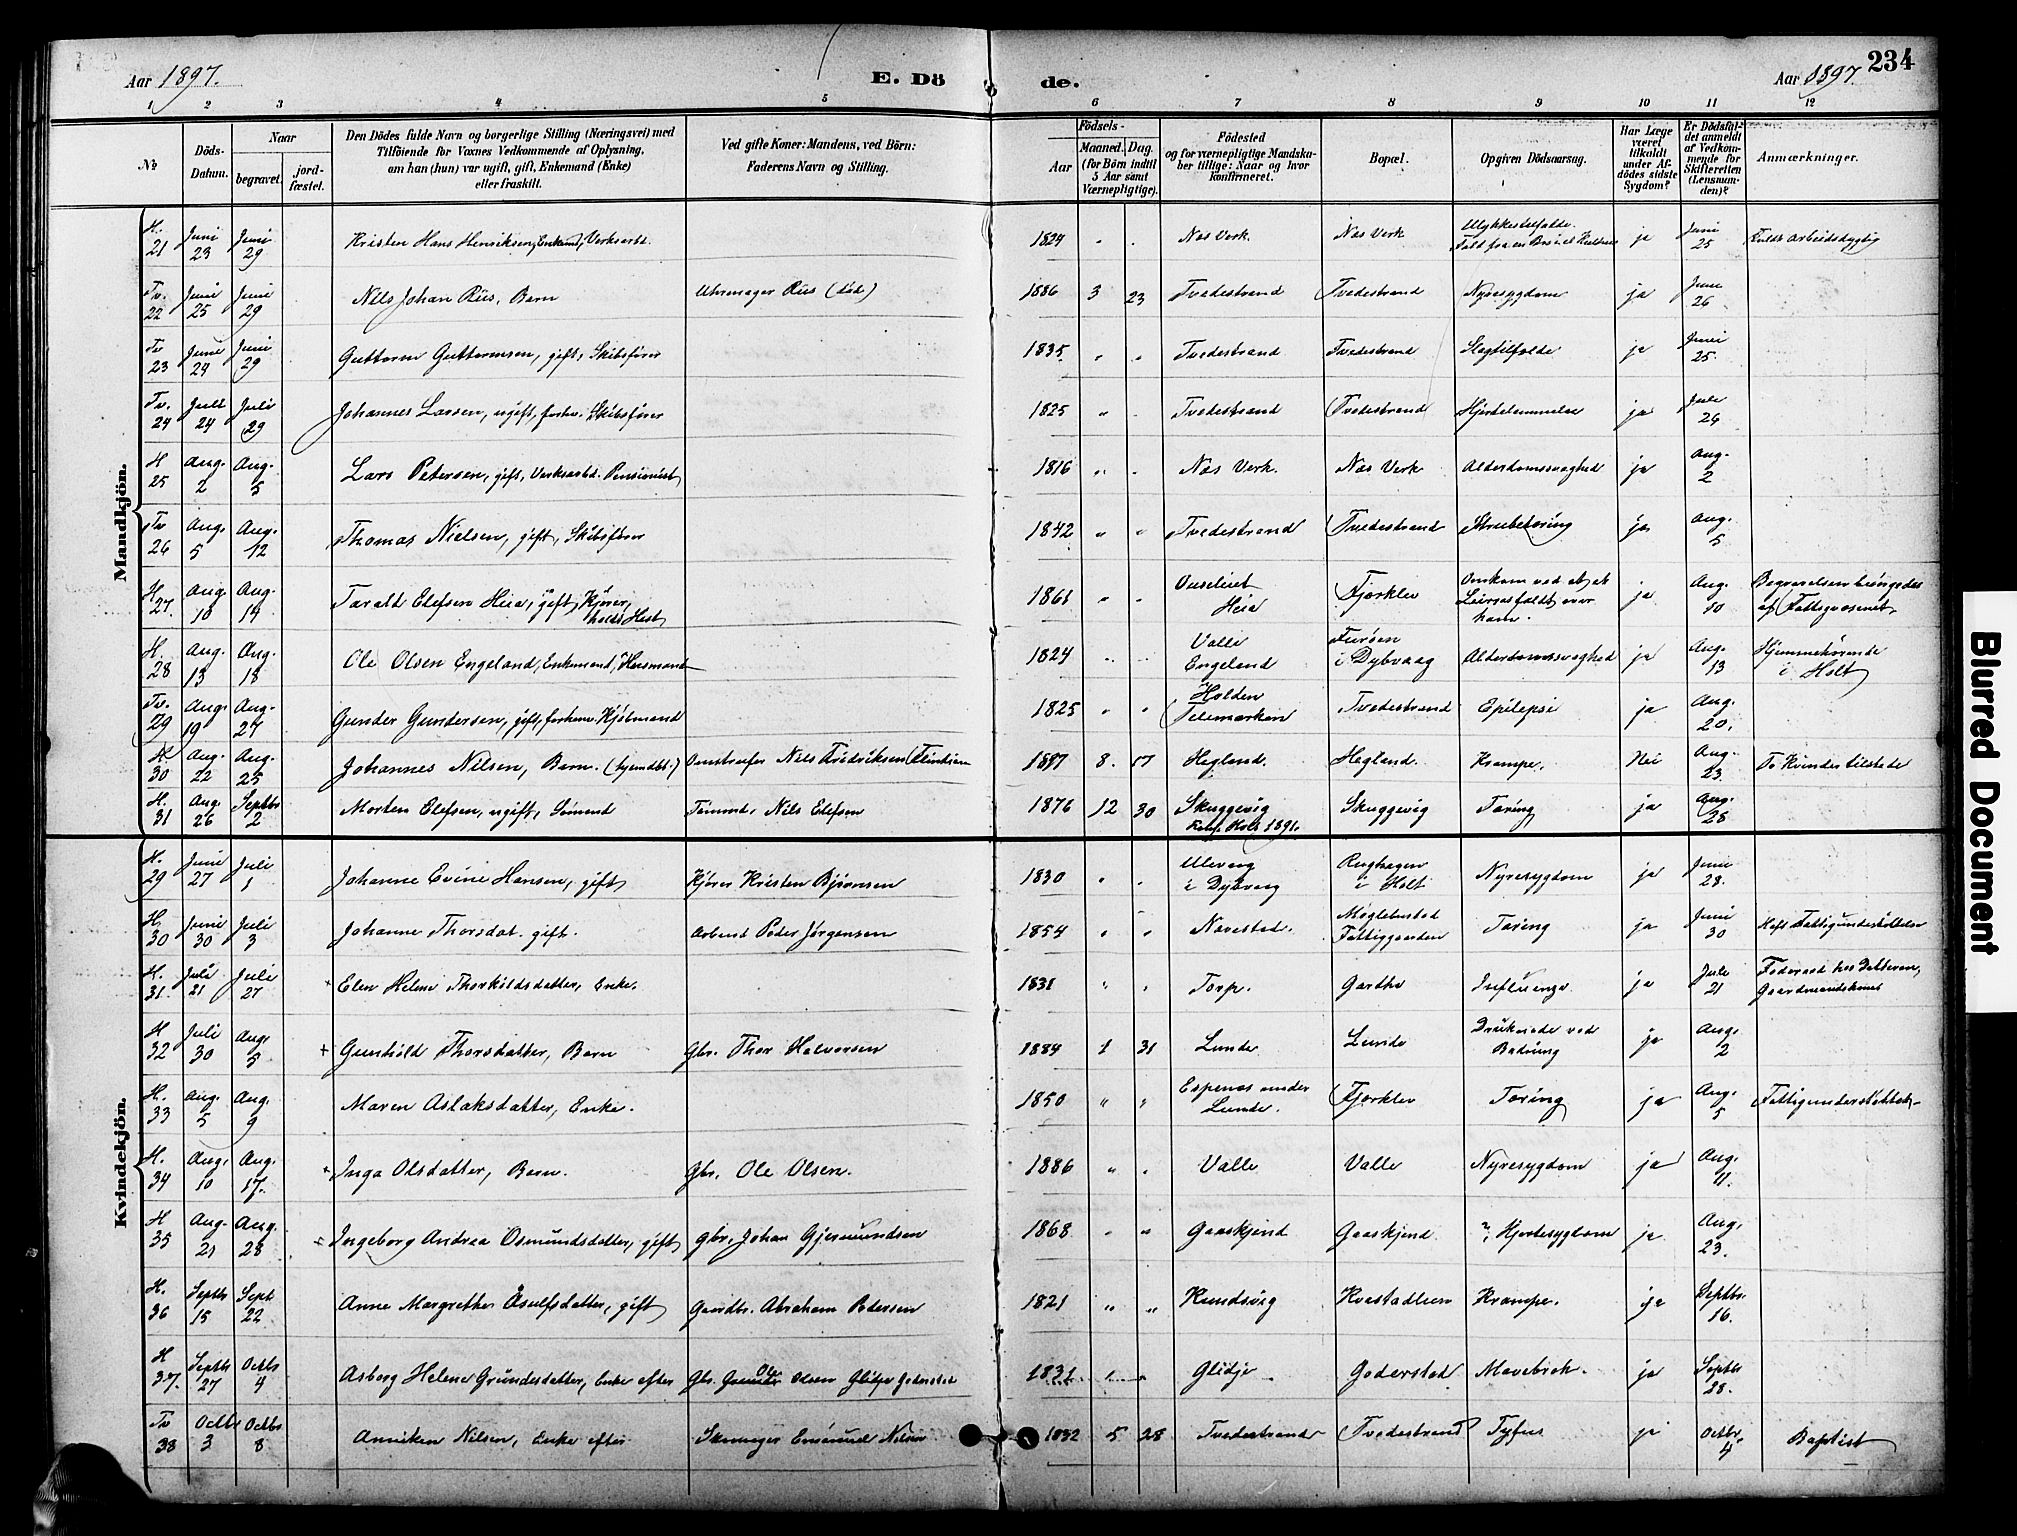 Aar 1897.
E. Dö
de.
Aar 1897.
234
1 2 3 4 5 6 7 8 9 10 11 12
No
Döds-Datum.
Naar
begravet.
jord-fæstet.
Den Dödes fulde Navn og borgerlige Stilling (Næringsvei) med
Tilföiende for Voxnes Vedkommende af Oplysning,
om han (hun) var ugift, gift, Enkemand (Enke)
eller fraskilt.
Ved gifte Koner: Mandens, ved Börn:
Faderens Navn og Stilling.
Födsels-
Aar
Maaned. Dag.
(for Börn indtil
5 Aar samt
Værnepligtige).
Födested
og for værnepligtige Mandska-
ber tillige: Naar og hvor
konfirmeret.
Bopæl.
Opgiven Dödsaarsag.
Har Læge
været
tilkaldt
under Af-
dödes sidste
Sygdom?
Er Dödsfal-
det anmeldt
af Vedkom-
mende for
Skifteretten
(Lensman-
den)?
Anmærkninger.
Mandkjön.
H. 21 Juni 23 Juni 29 Kristen Hans Henriksen, Enkemd, Verksarbd. 1824 " . Næs Verk. Næs Verk Ulykkestilfælde. Faldt fra en ja Juni 25 Fuldt arbeidsdygtig
Tv. 22 Juni 25 Juni 29 Nils Johan Riis, Barn Uhrmager Riis (död) 1886 3 23 Tvedestrand Tvedestrand Nyresygdom ja Juni 26
Tv 23 Juni 24 Juni 29 Guttorm Guttormsen, gift, Skibsförer 1835 " " Tvedestrand Tvedestrand Slagtilfælde ja Juni 25.
Tv. 24 Juli 24 Juli 29 Johannes Larsen, ugift, forhv. Skibsförer 1825 " . Tvedestrand Tvedestrand Hjertelammelse ja Juli 26
H 25 Aug. 2 Aug. 5 Lars Petersen, gift, Verksarbd. Pensionist 1816 " . Næs Verk. Næs Verk Alderdomssvaghed ja Aug. 2
Tv 26 Aug. 5 Aug. 12 Thomas Nielsen, gift, Skibsförer 1842 " " Tvedestrand Tvedestrand Strubetæring ja Aug. 5
H. 27 Aug 10 Aug. 14 Taralt Elefsen Heia, gift, Kjörer, holdt Hest 1861 " " Heia Fjærklev Omkom ved at et over ham. ja Aug 10 Begravelsen af Fattigvæsenet
H. 28 Aug. 13 Aug. 18 Ole Olsen Engeland, Enkemand, Husmand 1824 " . Valle Engeland Furöen i Dybvaag Alderdomssvaghed ja Aug. 13 Hjemmehörende i Holt
Tv. 29 Aug. 19 Aug. 24 Gunder Gundersen, gift, forhenv. Kjöbmand 1825 " " Holden Telemarken Tvedestrand Epilepsi ja Aug. 20.
H 30 Aug. 22 Aug. 25 Johannes Nilsen, Barn. (hjemdbt.) Nils Fredriksen 1897 8. 17 Hegland. Hegland. Krampe. Nei Aug. 23. To Kvinder tilstede
H. 31 Aug. 26 Septbr 2 Morten Elefsen, ugift, Sömand Tömmd. Nils Elefsen 1876 12 30 Skuggevig Konf. Holt 1891. Skuggevig Tæring ja Aug. 28
Kvindekjön.
H. 29 Juni 27 Juli 1 Johanne Evine Hansen, gift Kjörer Kristen Björnsen 1830 " . Ulevaag i Dybvaag i Holt Nyresygdom ja Juni 28.
H. 30 Juni 30 Juli 3 Johanne Thorsdat. gift. Arbmd Peder Jörgensen 1854 " " Navestad. Fattiggaarden Tæring ja Juni 30 Fattigunderstöttelse
H. 31. Juli 21 Juli 27 + Elen Helene Thorkildsdatter, Enke. 1831 " . Torp. Garthe Influenza ja Juli 21 Föderaad hos Datteren, Gaardmandskone
H 32 Juli 30 Aug. 5 + Gunhild Thorsdatter, Barn Gbr. Thor Halvorsen 1884 1 31 Lunde Lunde Druknede ved Badning ja Aug. 2
H. 33 Aug. 5 Aug. 9 Maren Aslaksdatter, Enke. 1850 " " Espenæs under Lunde. Fjærklev Tæring ja Aug. 5
H. 34 Aug. 10 Aug. 17. + Inga Olsdatter, Barn. Gbr. Ole Olsen. 1886 " . Valle Valle Nyresygdom ja Aug. 11.
H 35 Aug. 21 Aug. 28 + Ingeborg Andrea Osmundsdatter, gift gbr. Johan Gjermundsen 1868 " " Gaaskjend Gaaskjend. Hjertesygdom ja Aug. 23.
H. 36 Septbr 15 Sept. 22 Anne Margrethe Osulfsdatter, gift Gaardbr. Abraham Petersen 1821 " " Kvastadlien Krampe. ja Septbr. 16.
H 37. Septbr 27 Octbr 4 Asborg Helene Gundersdatter, Enke efter Gbr. Ole Olsen 1831 " Goderstad Mavekræft. ja Septbr. 28.
Tv 38 Octbr 3 Octbr 8 Anniken Nilsen, Enke efter Skomager Emanuel Nilsen 1832 5 28 Tvedestrand Tvedestrand Tyfus ja Octbr. 4 Baptist
Blurred Document